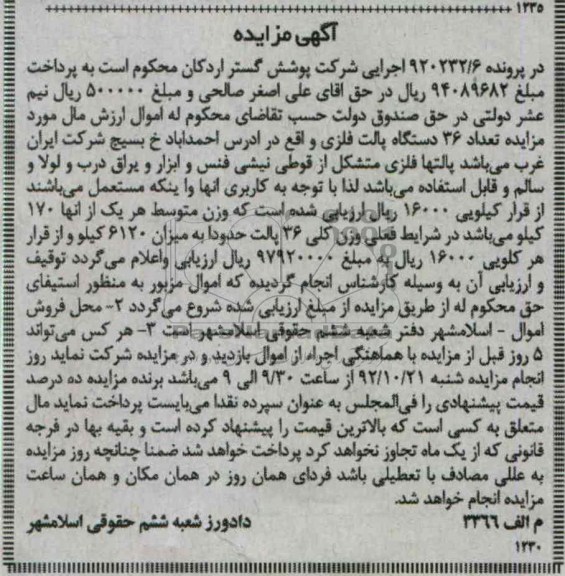 ۱۳۳۵
آگهی مزایده
در پرونده ۹۲۰۲۳۲/۶ اجرایی شرکت پوشش گستر اردکان محکوم است به پرداخت
مبلغ ۹۴۰۸۹۶۸۲ ریال در حق اقای علی اصغر صالحی و مبلغ ۵۰۰۰۰۰ ریال نیم
عشر دولتی در حق صندوق دولت حسب تقاضای محکوم له اموال ارزش مال مورد
مزایده تعداد ۳۶ دستگاه پالت فلزی و اقع در ادرس احمداباد خ بسیج شرکت ایران
غرب می‌باشد پالتها فلزی متشکل از قوطی نیشی فنس و ابزار و یراق درب و لولا و
سالم و قابل استفاده می‌باشد لذا با توجه به کاربری انها وا ینکه مستعمل می‌باشند
از قرار کیلویی ۱۶۰۰۰ ریال ارزیابی شده است که وزن متوسط هر یک از انها ۱۷۰
کیلو می‌باشد در شرایط فعلی وزن کلی ۳۶ پالت حدودا به میزان ۶۱۲۰ کیلو و از قرار
هر کلویی ۱۶۰۰۰ ریال به مبلغ ۹۷۹۲۰۰۰۰ ریال ارزیابی واعلام می‌گردد توقیف
و ارزیابی آن به وسیله کارشناس انجام گردیده که اموال مزبور به منظور استیفای
حق محکوم له از طریق مزایده از مبلغ ارزیابی شده شروع می‌گردد ۲- محل فروش
اموال - اسلامشهر دفتر شعبه ششم حقوقی اسلامشهر است ۳- هر کس می‌تواند
۵ روز قبل از مزایده با هماهنگی اجراء از اموال بازدید و در مزایده شرکت نماید روز
انجام مزایده شنبه ۹۲/۱۰/۲۱ از ساعت ۹/۳۰ الی ۹ می‌باشد برنده مزایده ده درصد
قیمت پیشنهادی را فی‌المجلس به عنوان سپرده نقدا می‌بایست پرداخت نماید مال
متعلق به کسی است که بالاترین قیمت را پیشنهاد کرده است و بقیه بها در فرجه
قانونی که از یک ماه تجاوز نخواهد کرد پرداخت خواهد شد ضمنا چنانچه روز مزایده
به عللی مصادف با تعطیلی باشد فردای همان روز در همان مکان و همان ساعت
مزایده انجام خواهد شد.
م الف ۳۳۶۶ دادورز شعبه ششم حقوقی اسلامشهر
۱۲۳۰